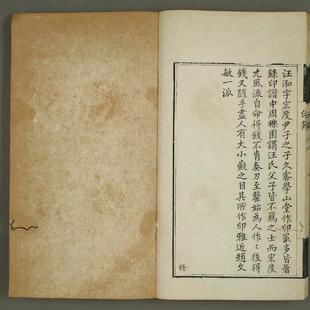 汪泓字宏度尹子之子久客學山堂作印最多皆著
錄印譜中周櫟園謂汪氏父子皆不羈之士而宏度
尤風流自命得錢不肯奏刀至始為人作〻後得
錢又隨手盡人有大小癡之目其所作印雅近趙文
敏一派
終